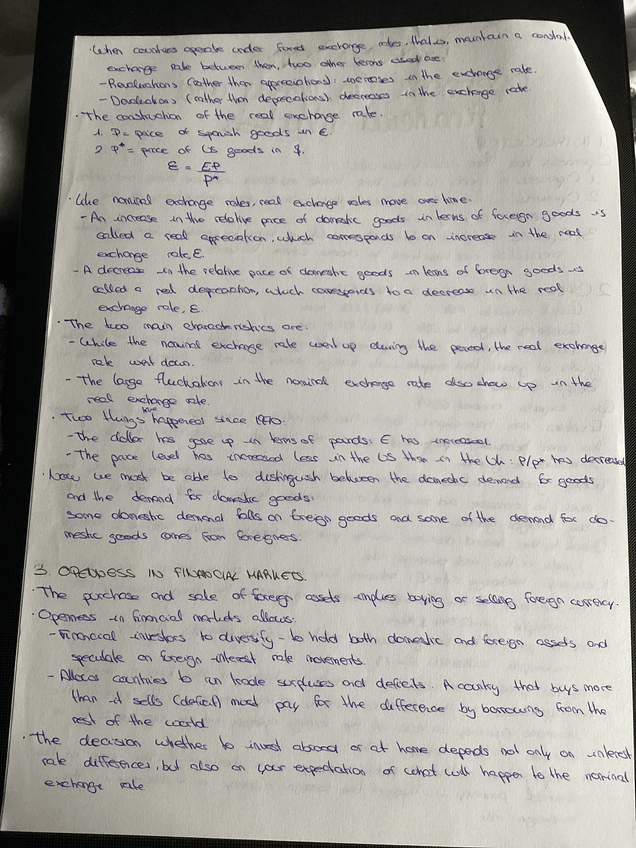 · When countries operate under fixed exchange rates, that is, maintain a constant
exchange rate between them, two other terms used are:
- Revaluations (rather than appreciations): increases in the exchange rate.
- Devaluations (rather than depreciations), decreases in the exchange rate.
· The construction of the real exchange rate.
1. P = price of spanish goods in €.
2. P* = price of US goods in $.
ε = EP
P*
· Like nominal exchange rates, real exchange rates move over time:
- An increase in the relative price of domestic goods in terms of foreign goods is
called a real appreciation, which corresponds to an increase in the real
exchange rate, ε.
- A decrease in the relative price of domestic goods in terms of foreign goods is
called a real depreciation, which corresponds to a decrease in the real
exchange rate, ε.
· The two main characteristics are:
- While the nominal exchange rate went up during the period, the real exchange
rate went down.
- The large fluctuations in the nominal exchange rate also show up in the
real exchange rate.
· Two things have happened since 1970:
- The dollar has gone up in terms of pounds: E has increased.
- The price level has increased less in the US than in the Uk: P/P* has decreased
· Now we must be able to distinguish between the domestic demand for goods
and the demand for domestic goods:
Some domestic demand falls on foreign goods and some of the demand for do-
mestic goods comes from foreigners.
3. OPENNESS IN FINANCIAL MARKETS.
· The purchase and sale of foreign assets implies buying or selling foreign currency.
· Openness in financial markets allows:
- Financial investors to diversify - to hold both domestic and foreign assets and
speculate on foreign interest rate movements.
- Allows countries to run trade surpluses and deficits. A country that buys more
than it sells (deficit) must pay for the difference by borrowing from the
rest of the world.
· The decision whether to invest abroad or at home depends not only on interest
rate differences, but also on your expectation of what will happen to the nominal
exchange rate